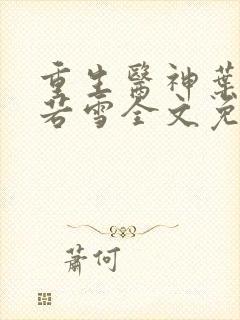 重生醫神葉
若雪全文免
蕭何